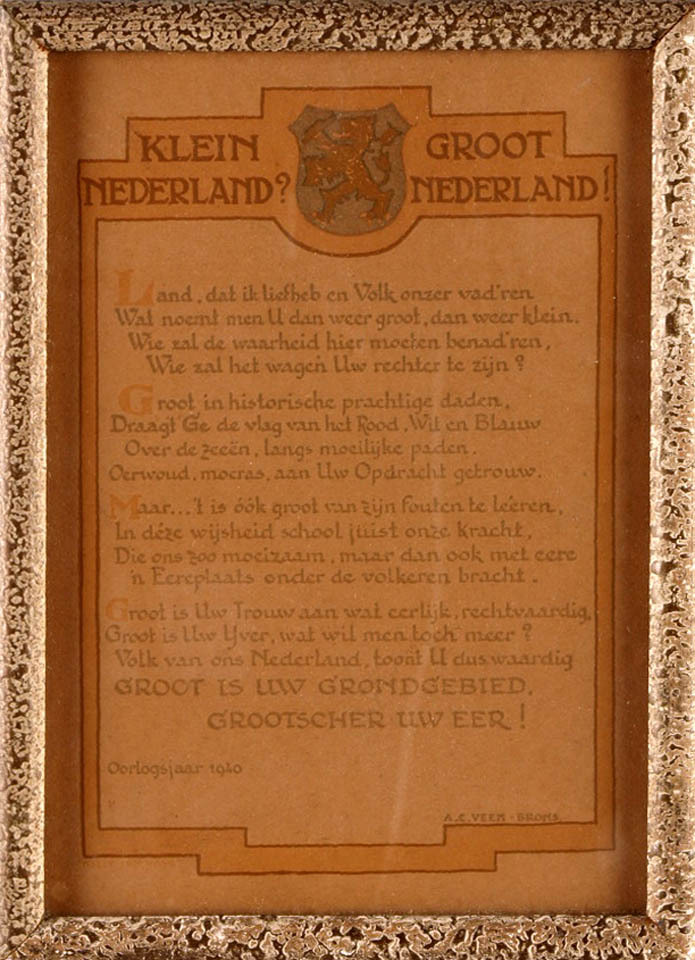 KLEIN
NEDERLAND?
GROOT
NEDERLAND!
Land, dat ik liefheb en Volk onzer vad'ren
Wat noemt men U dan weer groot, dan weer klein.
Wie zal de waarheid hier moeten benad'ren,
Wie zal het wagen Uw rechter te zijn?
Groot in historische prachtige daden,
Draagt Ge de vlag van het Rood, Wit en Blauw
Over de zeeën, langs moeilijke paden.
Oerwoud, moeras, aan Uw Opdracht getrouw.
Maar...'t is óók groot van zijn fouten te leeren,
In déze wijsheid school juist onze kracht,
Die ons zoo moeizaam, maar dan ook met eere
'n Eereplaats onder de volkeren bracht.
Groot is Uw Trouw aan wat eerlijk, rechtvaardig,
Groot is Uw Yver, wat wil men toch meer?
Volk van ons Nederland, toont U dus waardig
GROOT IS UW GRONDGEBIED,
GROOTSCHER UW EER!
Oorlogsjaar 1940
A.C. VEEM - BROMS.